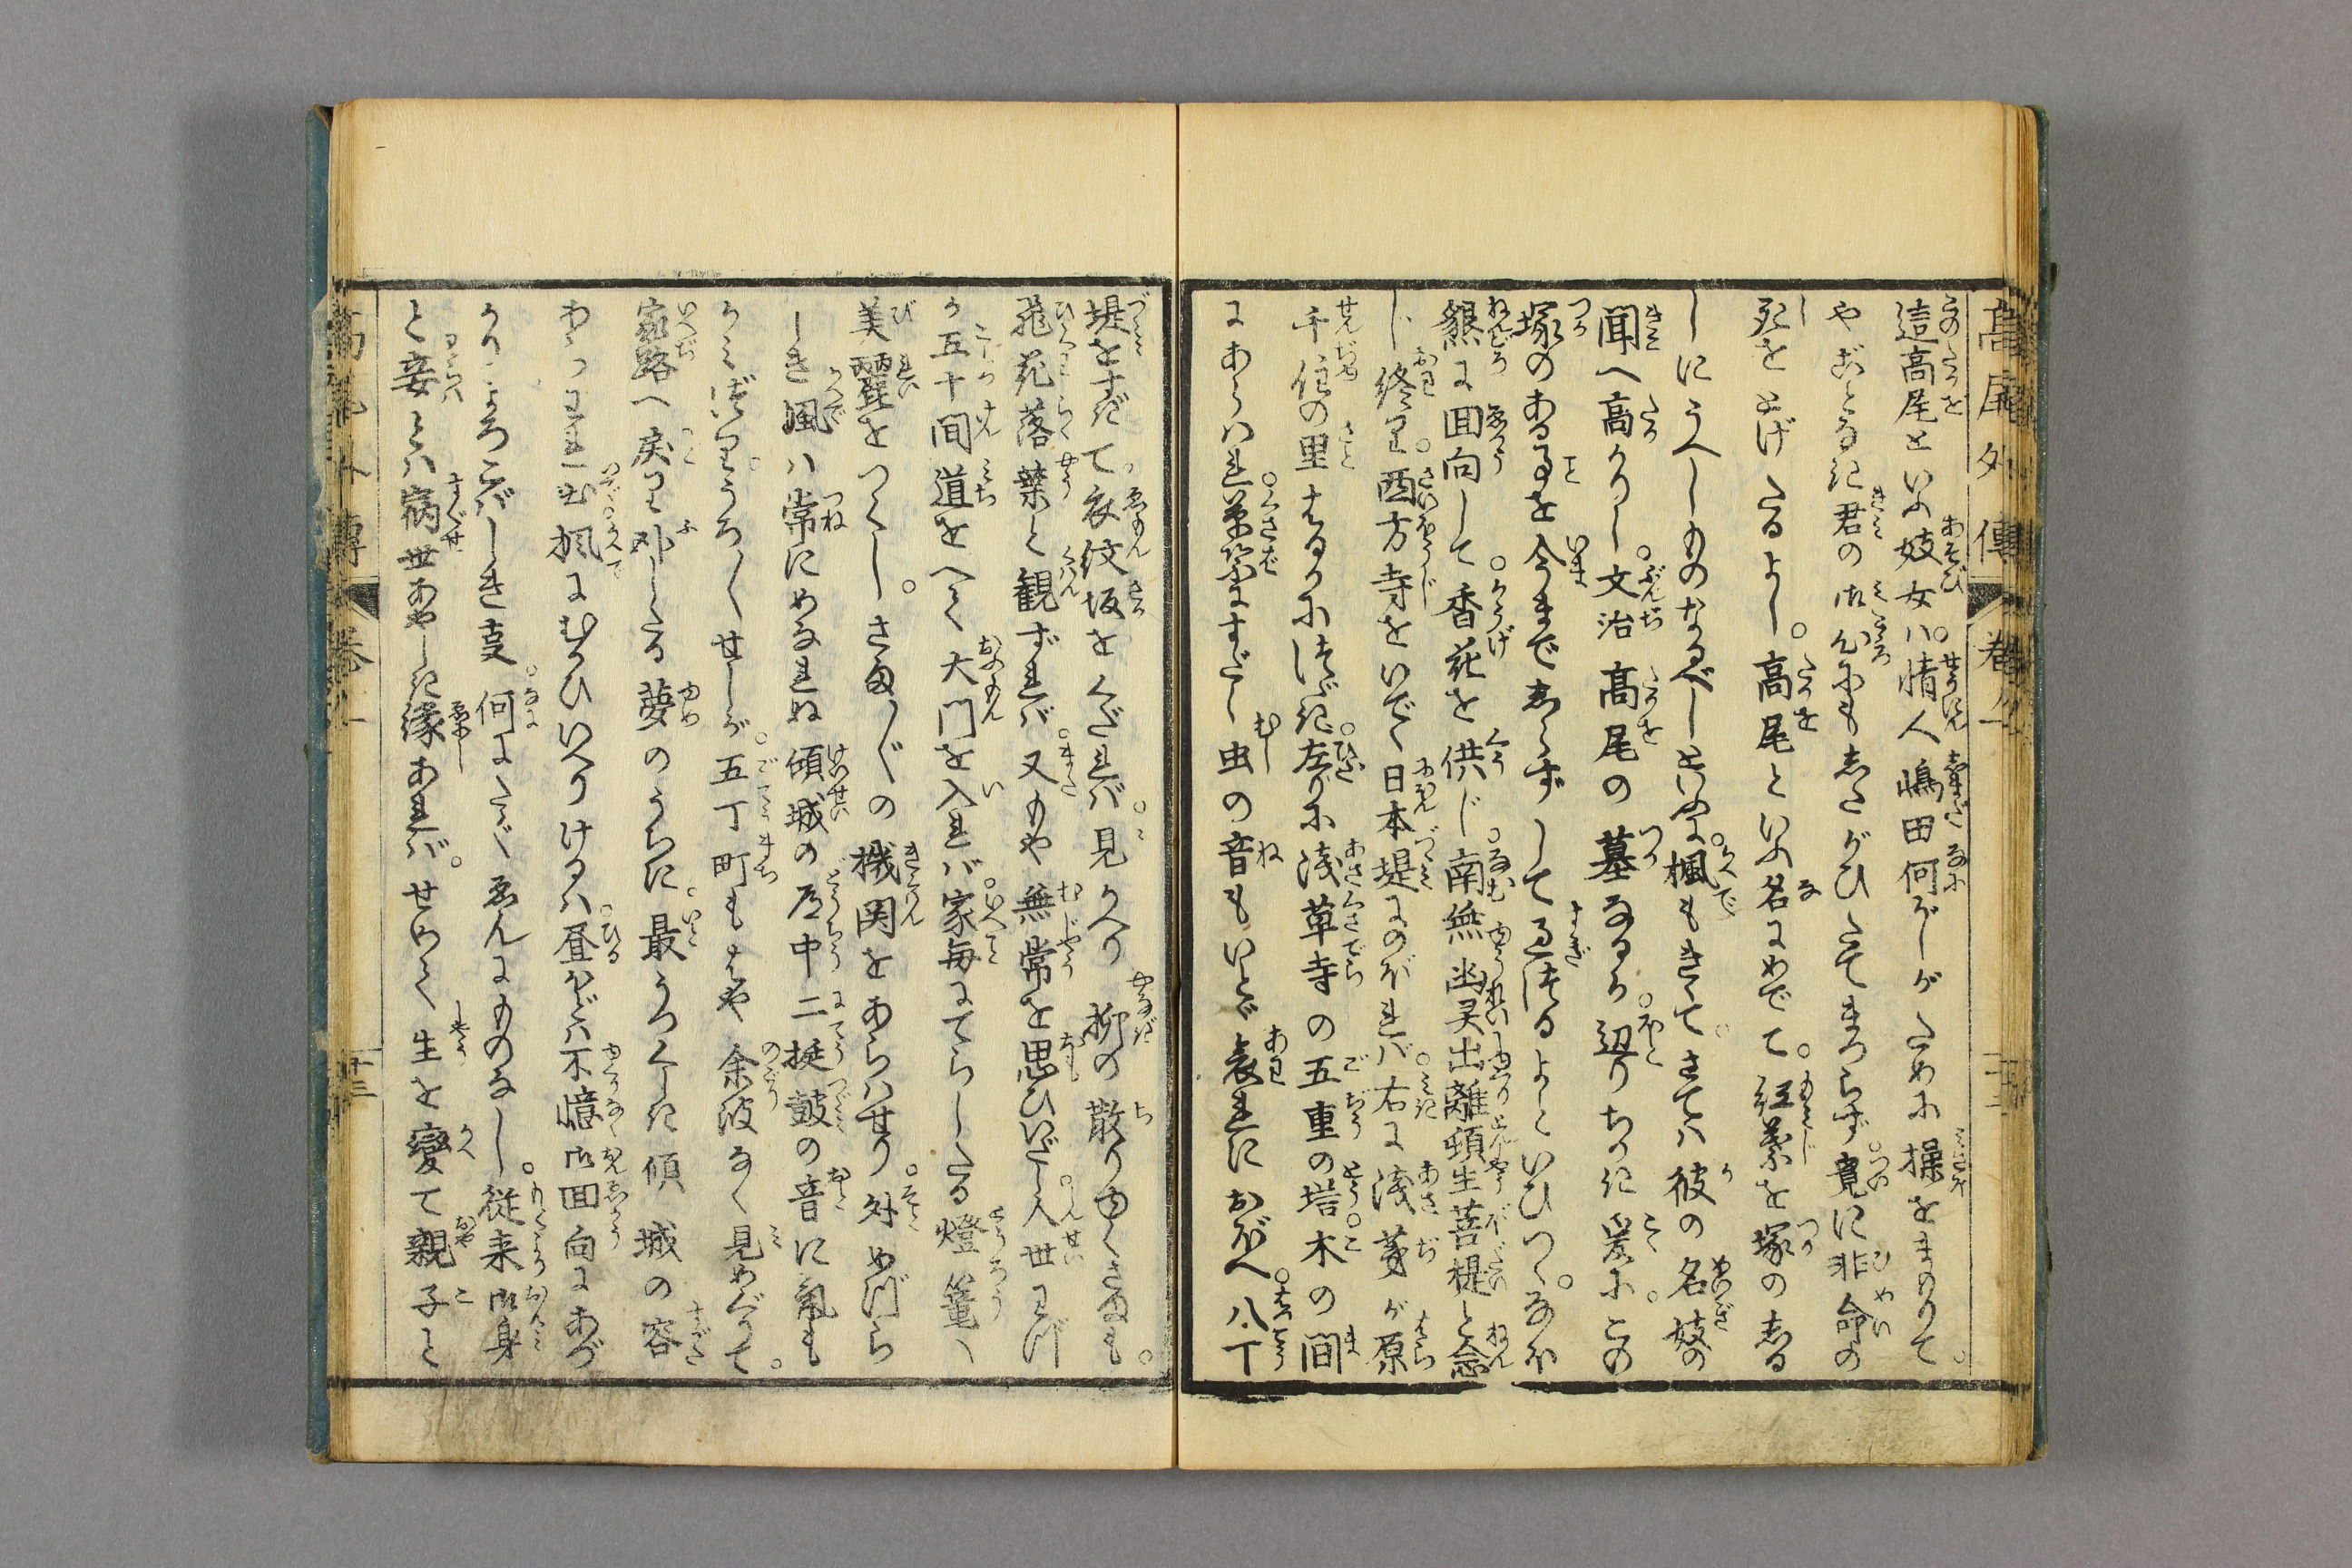 高尾外傳 巻一
這高尾といふ妓女ハ。情人嶋田何がしがために操をまもりて。
やごとなき君の御心にもしたがひたてまつらず。竟に非命の
死をとげたるよし。高尾といふ名にめでて。紅葉を塚のしる
しにうへしものなるべしといふに。楓もきゝて。さてハ彼の名妓の
聞へ高かりし。文治高尾の墓なるか。辺りちかき爰に。この
塚のある事を今までしらずして過つるよといひつゝ。なほ
懇に回向して。香花を供じ。南無幽灵出離頓生菩提と念
じ終り。西方寺をいでゝ日本堤にのぼれバ。右に浅茅が原
千住の里はるかにつゞき。左りに浅草寺の五重の塔。木の間
にあらハれ。草葉にすだく虫の音もいとゞ哀れにおぼへ。八丁
堤をすぎて。衣紋坂をくだれバ。見かへり柳の散りゆくさまも。
飛花落葉と観ずれバ。又もや無常を思ひいだし。人世わづ
か五十間道をへて大門を入れバ。家毎にてらしたる燈篭ハ
美麗をつくし。さま〴〵の機関をあらハせり。外めづら
しき風ハ常にめなれぬ傾城の道中二挺鼓の音に気も
うきうかりうろ〳〵せしが。五丁町もはや余波なく見めぐりて。
家路へ戻り外したる夢のうちに。最うつくしき傾城の容
あらわれ出。楓にむかひいへりけるハ。昼ほどハ不憶御回向にあづ
かりよろこばしき事。何にたぐゑんにものなし。従来御身
と妾とハ病世あやしき縁あれバ。せめて生を変て親子と